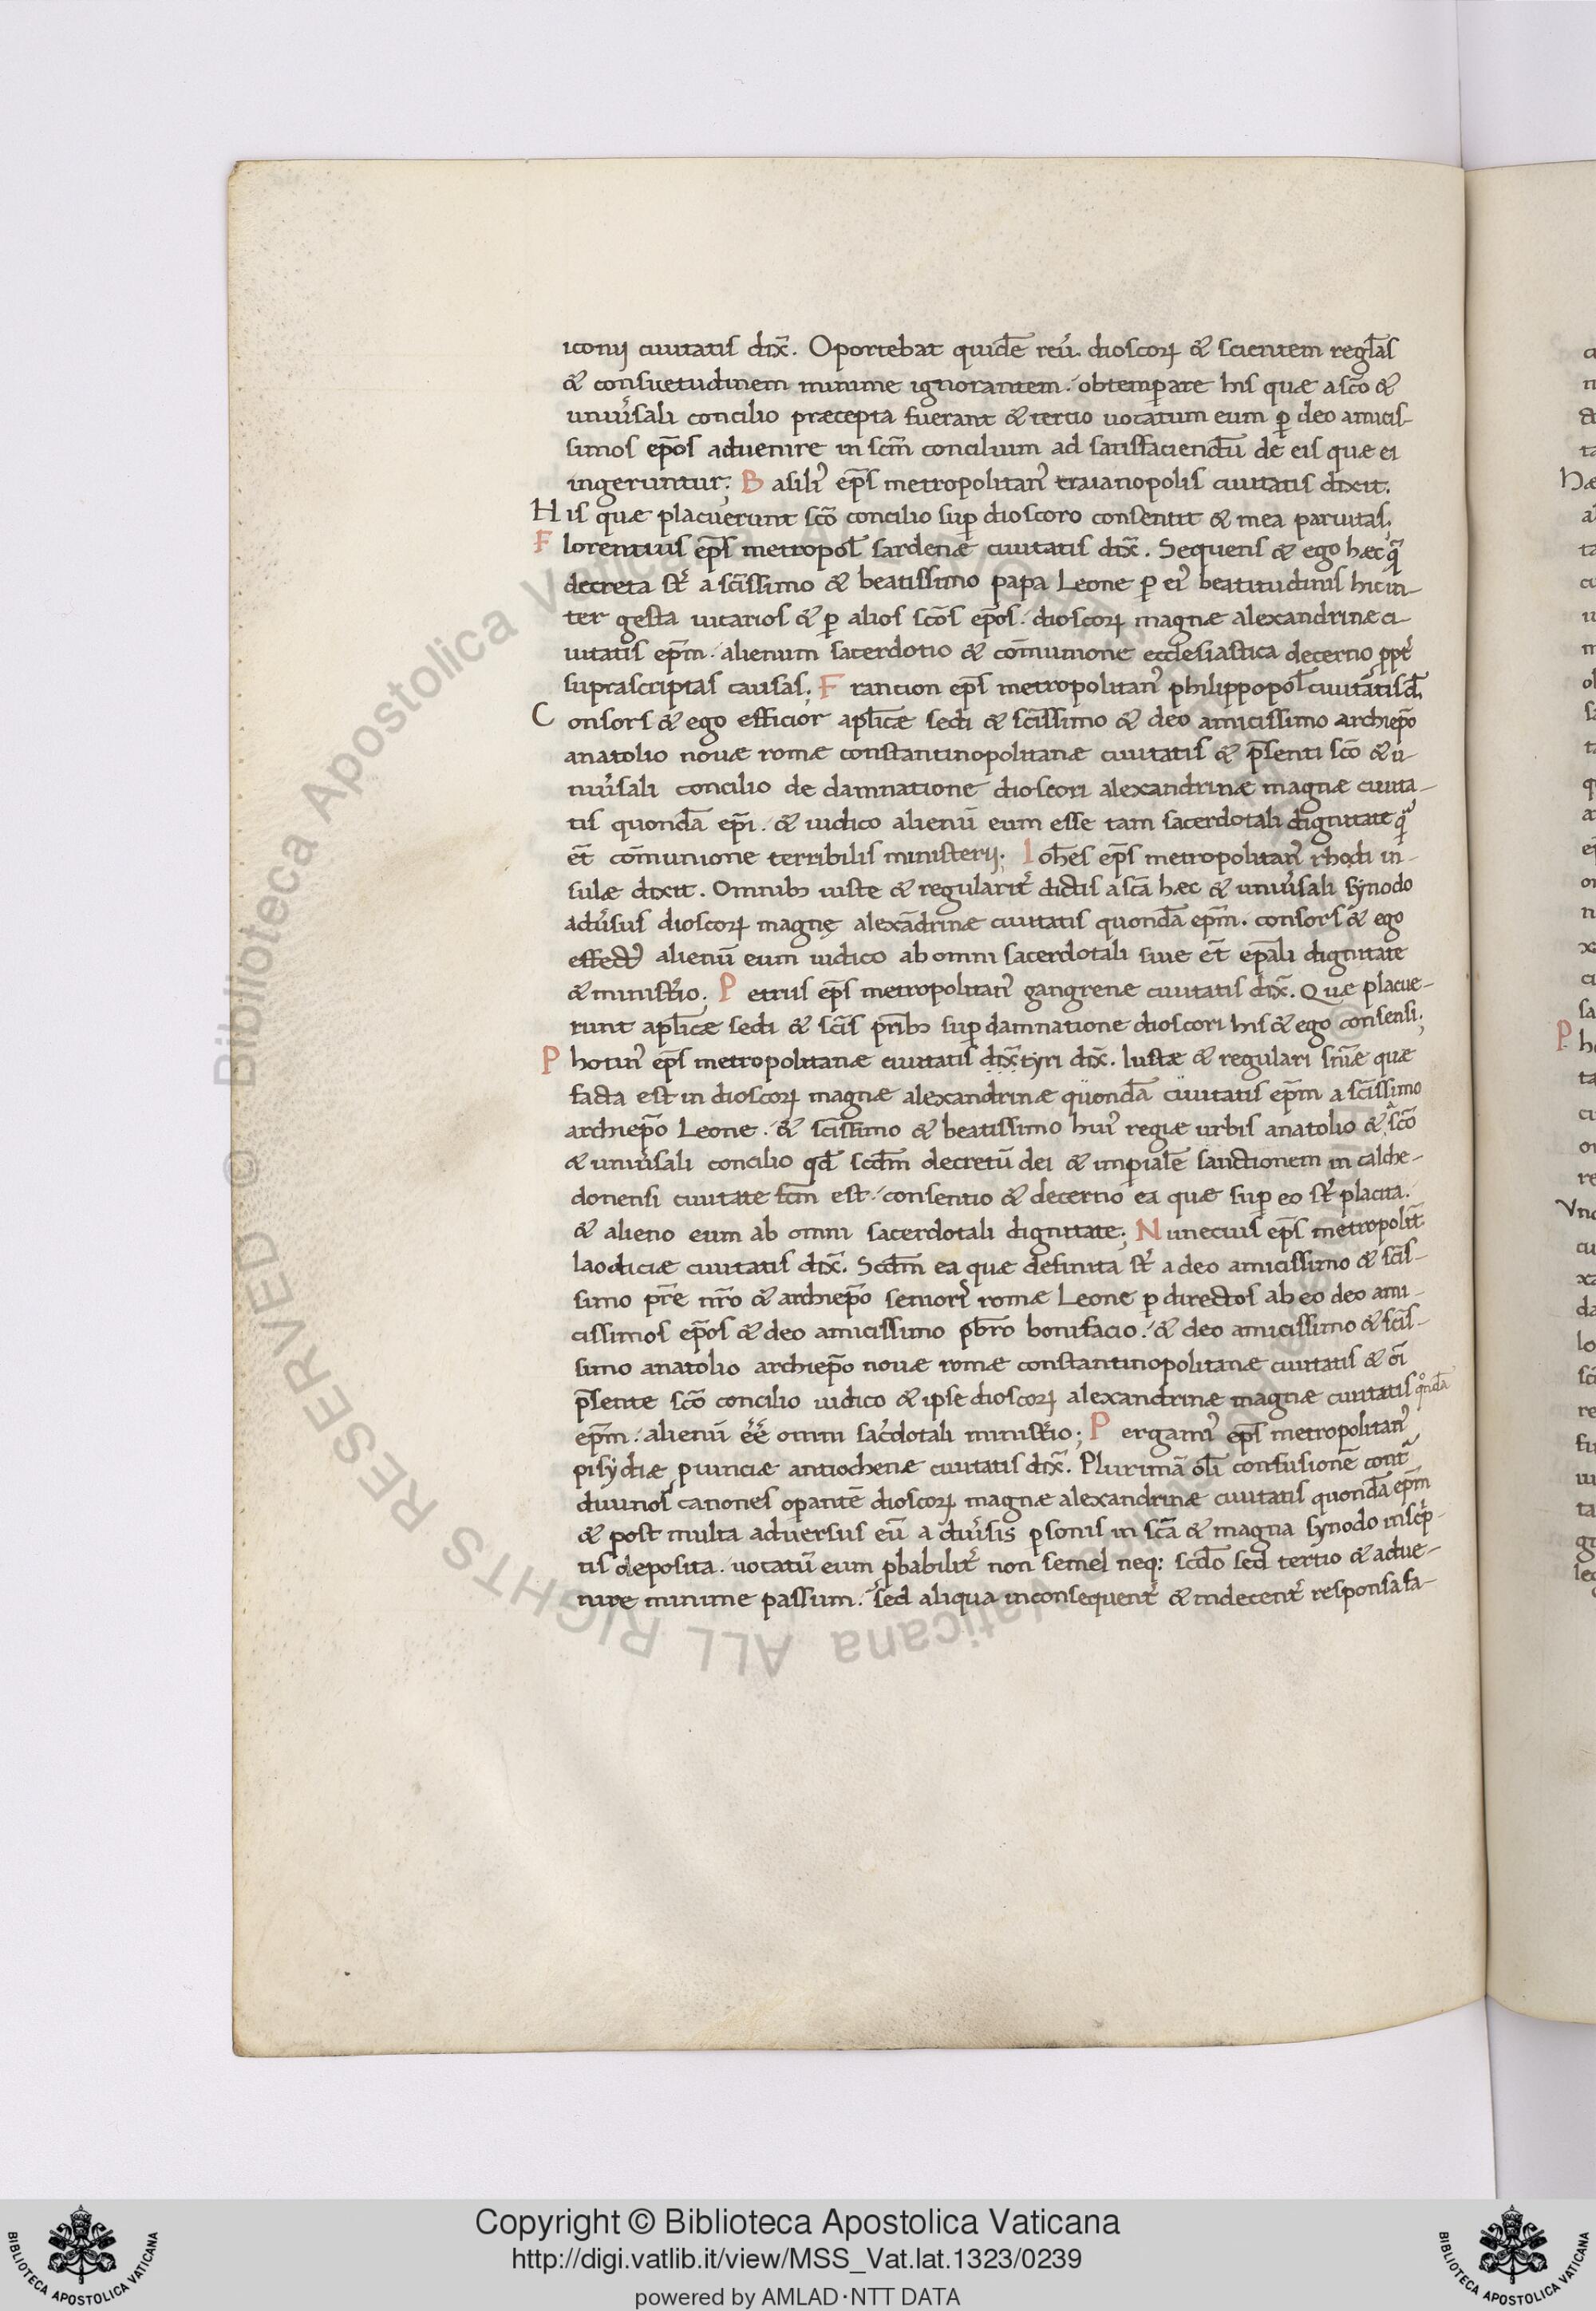 iconij ciuitatis dix̄. Oportebat quidē reū. dioscoꝝ & scientem regl̄as
& consuetudinem minime ignorantem. obtemꝑare his quæ a sc̄o &
uniũsali concilio præcepta fuerant & tercio uocatum eum ꝑ deo amicis-
simos ep̄os aduenire in sc̄m concilium ad satisfaciendū de eis quæ ei
ingeruntur; Basiliꝰ ep̄s metropolitanꝰ traianopolis ciuitatis dixit.
His quæ placuerunt sc̄o concilio suꝑ dioscoro consentit & mea paruitas.
Florentius ep̄s metropol̄ sardenæ ciuitatis dix̄. Sequens & ego hæc q̃
decreta st̄ a sc̄issimo & beatissimo papa Leone ꝑ eiꝰ beatitudinis hic in-
ter gesta uicarios & ꝑ alios sc̄os ep̄os. dioscoꝝ magnæ alexandrinæ ci-
uitatis ep̄m. alienum sacerdotio & cōmunione ecclesiastica decerno ꝓpt̄
suprascriptas causas; Francion ep̄s metropolitanꝰ philippopol̄ ciuitatis d̄.
Consors & ego efficior apl̄icæ sedi & sc̄issimo & deo amicissimo archiep̄o
anatolio nouæ romæ constantinopolitanæ ciuitatis & p̄senti sc̄o & u-
niũsali concilio de damnatione dioscori alexandrinæ magnæ ciuita-
tis quondā ep̄i. & iudico alienū eum esse tam sacerdotali dignitate q̃
et̄ cōmunione terribilis ministerij; Ioh̄es ep̄s metropolitanꝰ rhodi in-
sulæ dixit. Omnibꝫ iuste & regularit̄ dictis a sc̄a hæc & uniũsali synodo
adũsus dioscoꝝ magnę alexādrinæ ciuitatis quondā ep̄m. consors & ego
effectꝰ alienū eum iudico ab omni sacerdotali siue et̄ ep̄ali dignitate
& minist̄io. Petrus ep̄s metropolitanꝰ gangrenæ ciuitatis dix̄. Quæ placue-
runt apl̄icæ sedi & sc̄is pr̄ibꝫ suꝑ damnatione dioscori his & ego consensi;
Photinꝰ ep̄s metropolitanæ ciuitatis dix̄ tyri dix̄. Iustæ & regulari sn̄iæ quæ
facta est in dioscoꝝ magnæ alexandrinæ quondā ciuitatis ep̄m a sc̄issimo
archiep̄o Leone. & sc̄issimo & beatissimo huiꝰ regiæ urbis anatolio & a sc̄o
& uniũsali concilio qd̄ scd̄m decretū dei & imꝑialē sanctionem in calche-
donensi ciuitate fc̄m est. consentio & decerno ea quæ suꝑ eo st̄ placita.
& alieno eum ab omni sacerdotali dignitate; Nunecius ep̄s metropolit̄
laodiciæ ciuitatis dix̄. Scd̄m ea quæ definita st̄ a deo amicissimo & sc̄is-
simo pr̄e nr̄o & archiep̄o senioris romæ Leone ꝑ directos ab eo deo ami-
cissimos ep̄os & deo amicissimo pb̄ro bonifacio. & deo amicissimo & sc̄is-
simo anatolio archiep̄o nouæ romæ constantinopolitanæ ciuitatis & oī
p̄sente sc̄o concilio iudico & ipse dioscoꝝ alexandrinæ magnæ ciuitatis qōndā
ep̄m. alienū eẽ omni sac̃dotali minist̄io; Pergamiꝰ ep̄s metropolitanꝰ
pisydiæ ꝓuinciæ antiochenæ ciuitatis dix̄. Plurimā oli confusionē cont̃
diuinos canones opantē dioscoꝝ magnæ alexandrinæ ciuitatis quondā ep̄m
& post multa aduersus eū a diũsis ꝑsonis in sc̄a & magna synodo insc̃p-
tis deposita. uocatū eum ꝓbabilit̄ non semel neqꝫ scd̄o sed tertio & adue-
nire minime passum. sed aliqua inconsequent̄ & indecent̄ responsa fa-
Copyright © Biblioteca Apostolica Vaticana
http://digi.vatlib.it/view/MSS_Vat.lat.1323/0239
powered by AMLAD·NTT DATA